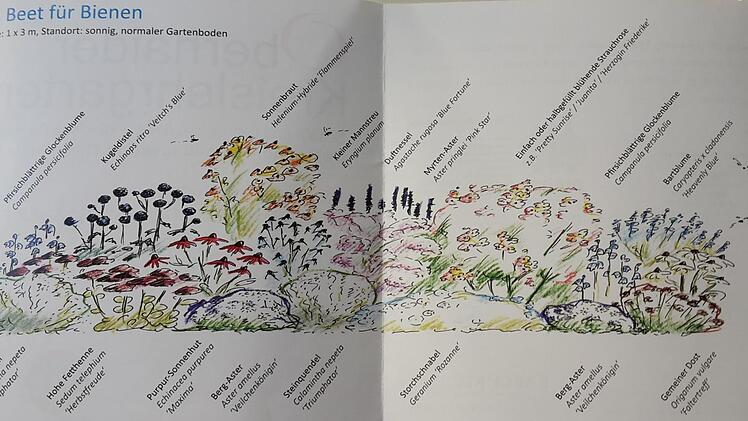 Beet für Bienen
: 1 x 3 m, Standort: sonnig, normaler Gartenboden
Pfirsichblättrige Glockenblume
Campanula persicifolia
Kugeldistel
Echinops ritro 'Veitch's Blue'
Sonnenbraut
Helenium-Hybride 'Flammenspiel'
Kleiner Mannstreu
Eryngium planum
Duftnessel
Agastache rugosa 'Blue Fortune'
Myrten-Aster
Aster pringlei 'Pink Star'
Einfach oder halbgefüllt blühende Strauchrose
z.B. 'Pretty Sunrise' / 'Juanita' / 'Herzogin Friederike'
Pfirsichblättrige Glockenblume
Campanula persicifolia
Bartblume
Caryopteris x clandonensis
'Heavenly Blue'
nepeta
Hohe Fetthenne
Sedum telephium
'Herbstfreude'
Purpur-Sonnenhut
Echinacea purpurea
'Maxima'
Berg-Aster
Aster amellus
'Veilchenkönigin'
Steinquendel
Calamintha nepeta
'Triumphator'
Storchschnabel
Geranium 'Rozanne'
Berg-Aster
Aster amellus
'Veilchenkönigin'
Gemeiner Dost
Origanum vulgare
'Faltertreff'